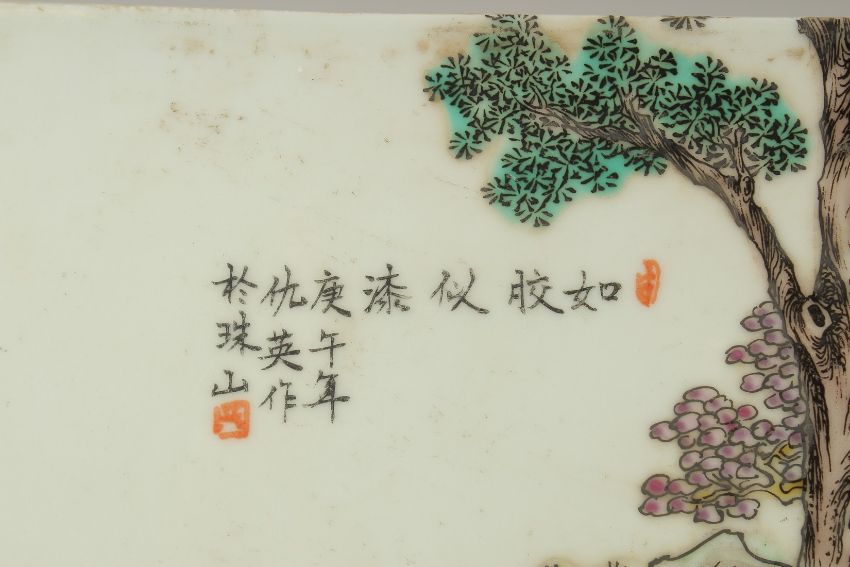 如胶似漆
庚午年
仇英作
於珠山